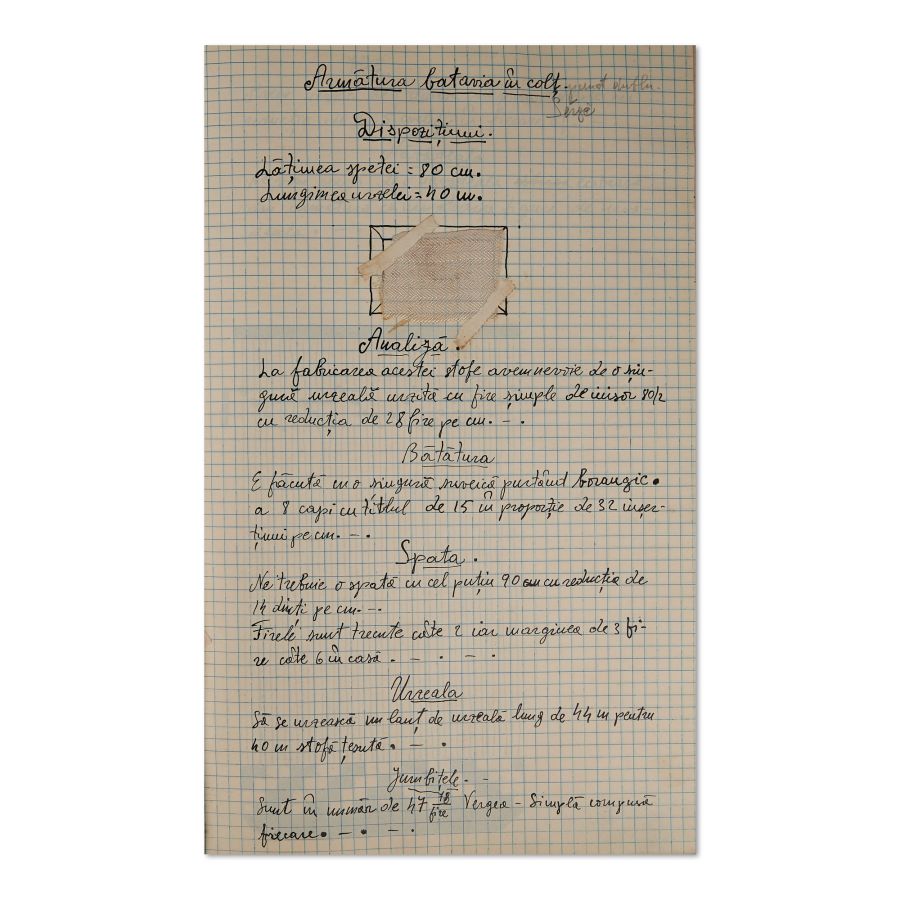 Armătura batavia în colț. punct dublu.
Serge
Dispozițiuni.
Lățimea spetei = 80 cm.
Lungimea urzelei = 40 m.
Analiză.
La fabricarea acestei stofe avem nevoie de o sin-
gură urzeală urzită cu fire simple de 80/2
cu reducția de 28 fire pe cm. - . -
Bătătura
E făcută cu o singură suveică purtând borangic.
a 8 capi cu titlul de 15 în proporție de 32 inser-
țiuni pe cm. - . -
Spata.
Ne trebuie o spată cu cel puțin 90 cm cu reducția de
14 dinți pe cm. - . -
Firele sunt trecute câte 2 iar marginea de 3 fi-
re câte 6 în casă. - . - . - .
Urzeala
Să se urzească un lanț de urzeală lung de 44 m pentru
40 m stofă țesută. - .
Jumbițele. -
Sunt în număr de 47 48/fire Vergea - Simplă compusă
fiecare. - . - .